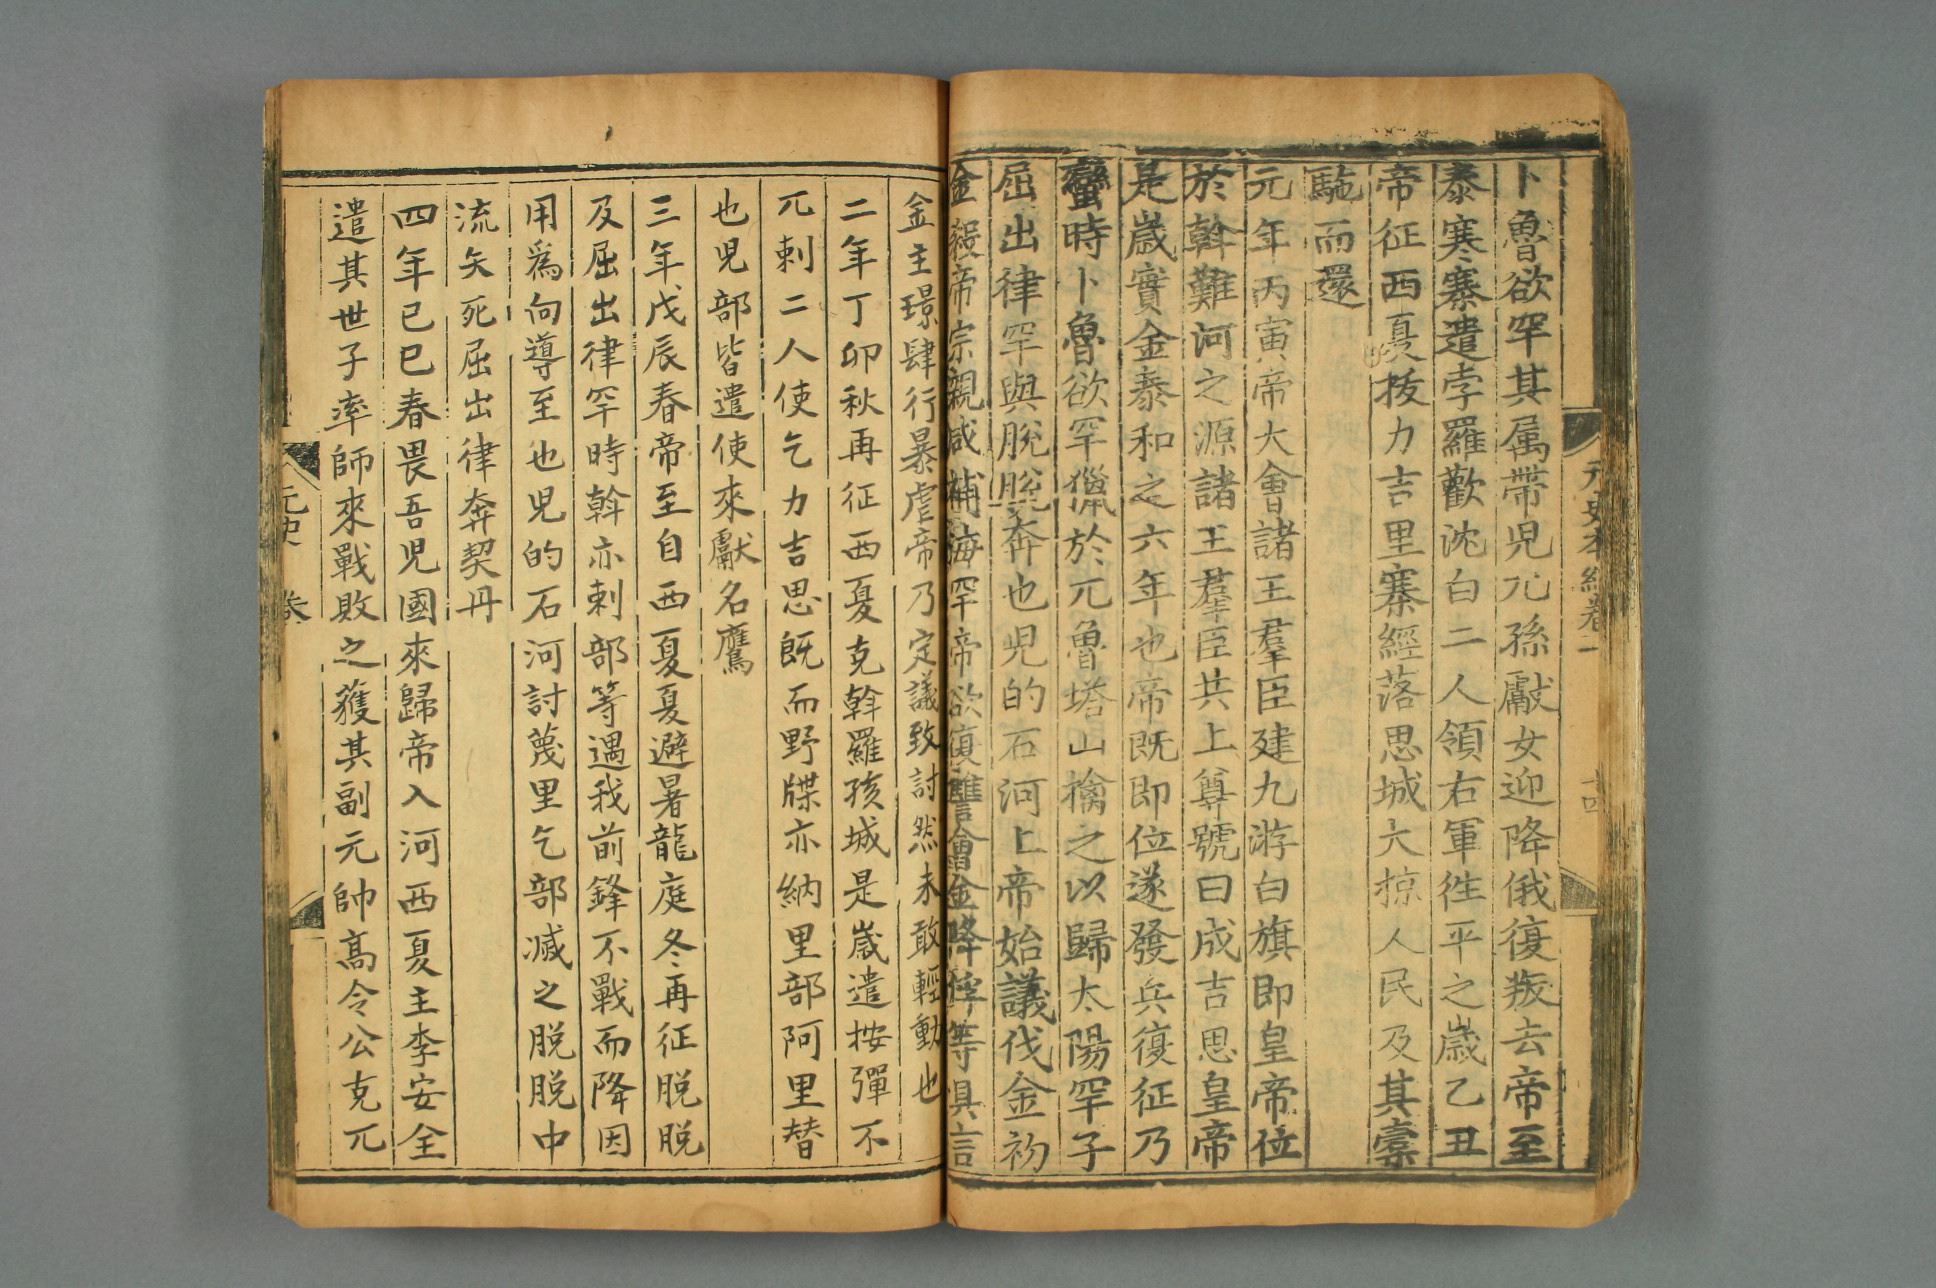 元史本紀卷一
十四
卜魯欲罕其属帶兒兀孫獻女迎降俄復叛去帝至
泰寒寨遣孛羅歡沈白二人領右軍徃平之歲乙丑
帝征西夏拔力吉里寨經落思城大掠人民及其橐
駞而還
元年丙寅帝大會諸王羣臣建九游白旗即皇帝位
於斡難河之源諸王羣臣共上尊號曰成吉思皇帝
是歲實金泰和之六年也帝既即位遂發兵復征乃
蠻時卜魯欲罕獵於兀魯塔山擒之以歸太陽罕子
屈出律罕與脫脫奔也兒的石河上帝始議伐金初
金殺帝宗親咸補海罕帝欲復讎會金降俘等俱言
金主璟肆行暴虐帝乃定議致討然未敢輕動也
二年丁卯秋再征西夏克斡羅孩城是歲遣按彈不
兀剌二人使乞力吉思既而野牒亦納里部阿里替
也児部皆遣使來獻名鷹
三年戊辰春帝至自西夏夏避暑龍庭冬再征脱脱
及屈出律罕時斡亦剌部等遇我前鋒不戰而降因
用爲向導至也児的石河討蔑里乞部滅之脱脱中
流矢死屈出律奔契丹
四年己巳春畏吾児國來歸帝入河西夏主李安全
遣其世子率師來戰敗之獲其副元帥高令公克兀
元史 卷